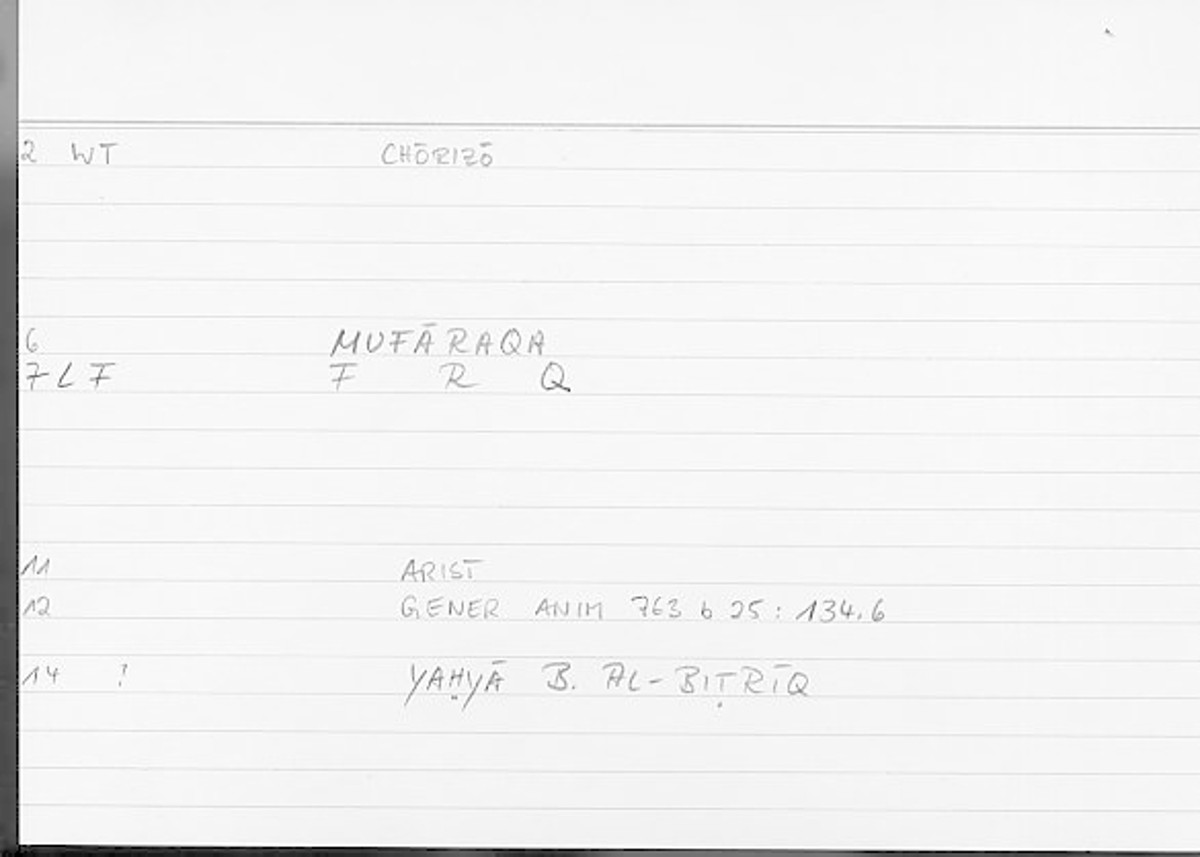 2 WT CHŌRIZŌ
6 MUFĀRAQA
7 LF F R Q
11 ARIST
12 GENER ANIM 763 b 25 : 134.6
14 ! YAḤYĀ B. AL-BIṬRĪQ